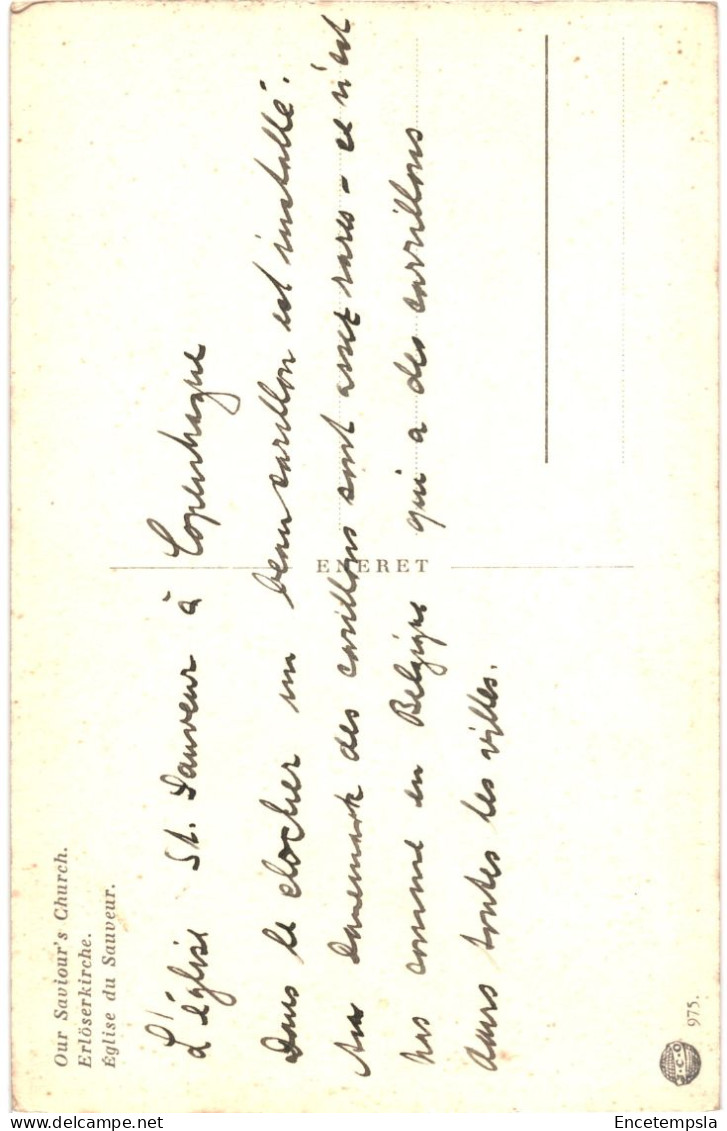 Our Saviour's Church.
Erlöserkirche.
Église du Sauveur.
L'église St. Sauveur à Copenhague
Dans le clocher un beau carillon est installé.
Au Danemark des carillons sont assez rares - ce n'est
pas comme en Belgique qui a des carrillons
dans toutes les villes.
ENERET
J.C.O
975.
Encetempsla